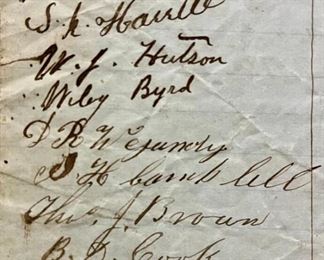 S. R. Harrell
W. J. Hutson
Wiley Byrd
D R McGundy
J H Campbell
Thos. J. Brown
B. D. Cook